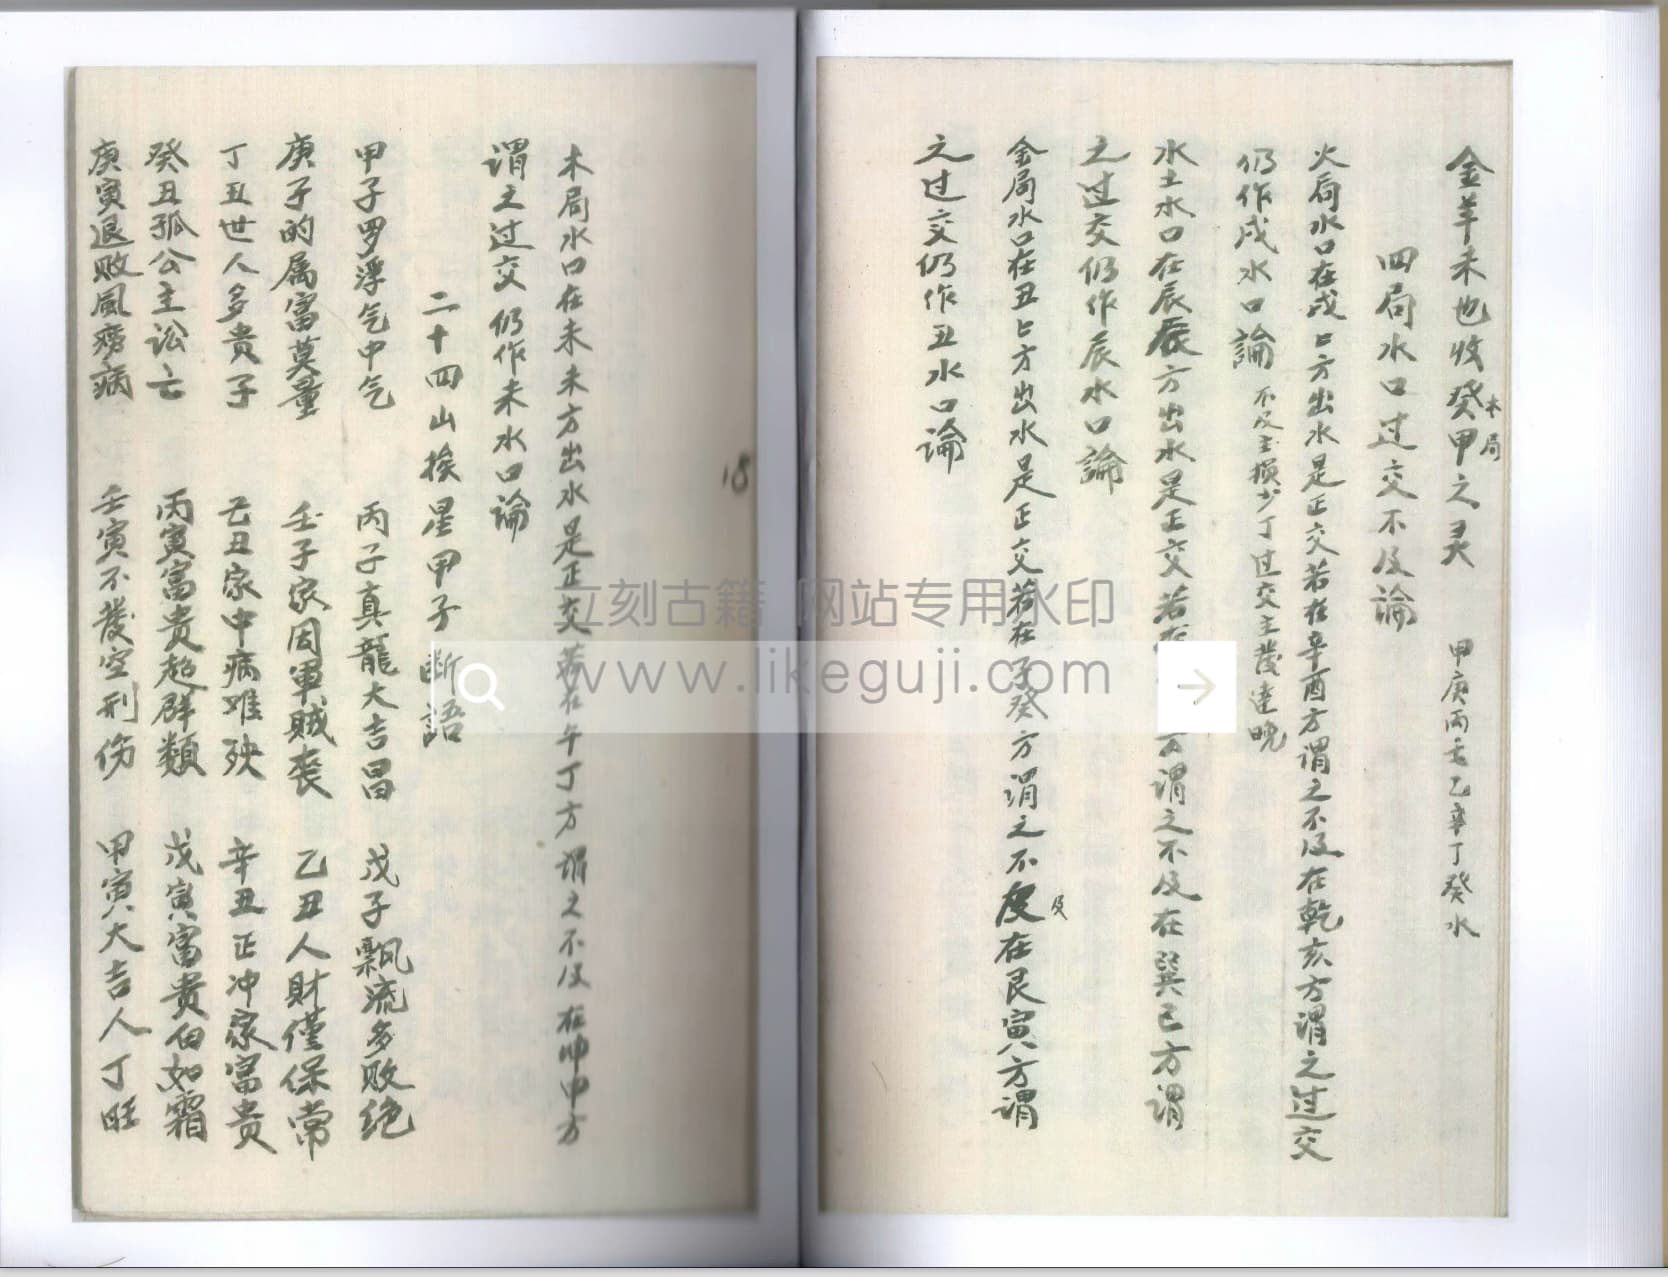 金羊未也收癸甲之灵 甲庚丙壬乙辛丁癸水
木局
四局水口过交不及論
火局水口在戌戌方出水是正交若在辛酉方谓之不及在乾亥方谓之过交
仍作戌水口論 不及主损少丁过交主發達晚
水土水口在辰辰方出水是正交若在 方谓之不及在巽巳方谓
之过交仍作辰水口論
金局水口在丑丑方出水是正交若在子癸方谓之不及在艮寅方谓
之过交仍作丑水口論
木局水口在未未方出水是正交若在午丁方谓之不及在坤申方
谓之过交仍作未水口論
二十四山挨星甲子斷語
甲子罗浮气中气 丙子真龍大吉昌 戊子飄流多败绝
庚子的属富莫量 壬子家因軍贼丧 乙丑人財僅保常
丁丑世人多贵子 己丑家中病难殃 辛丑正冲家富贵
癸丑孤公主讼亡 丙寅富贵超群類 戊寅富貴白如霜
庚寅退败風痨病 壬寅不發空刑伤 甲寅大吉人丁旺
18
立刻古籍 网站专用水印
www.likeguji.com